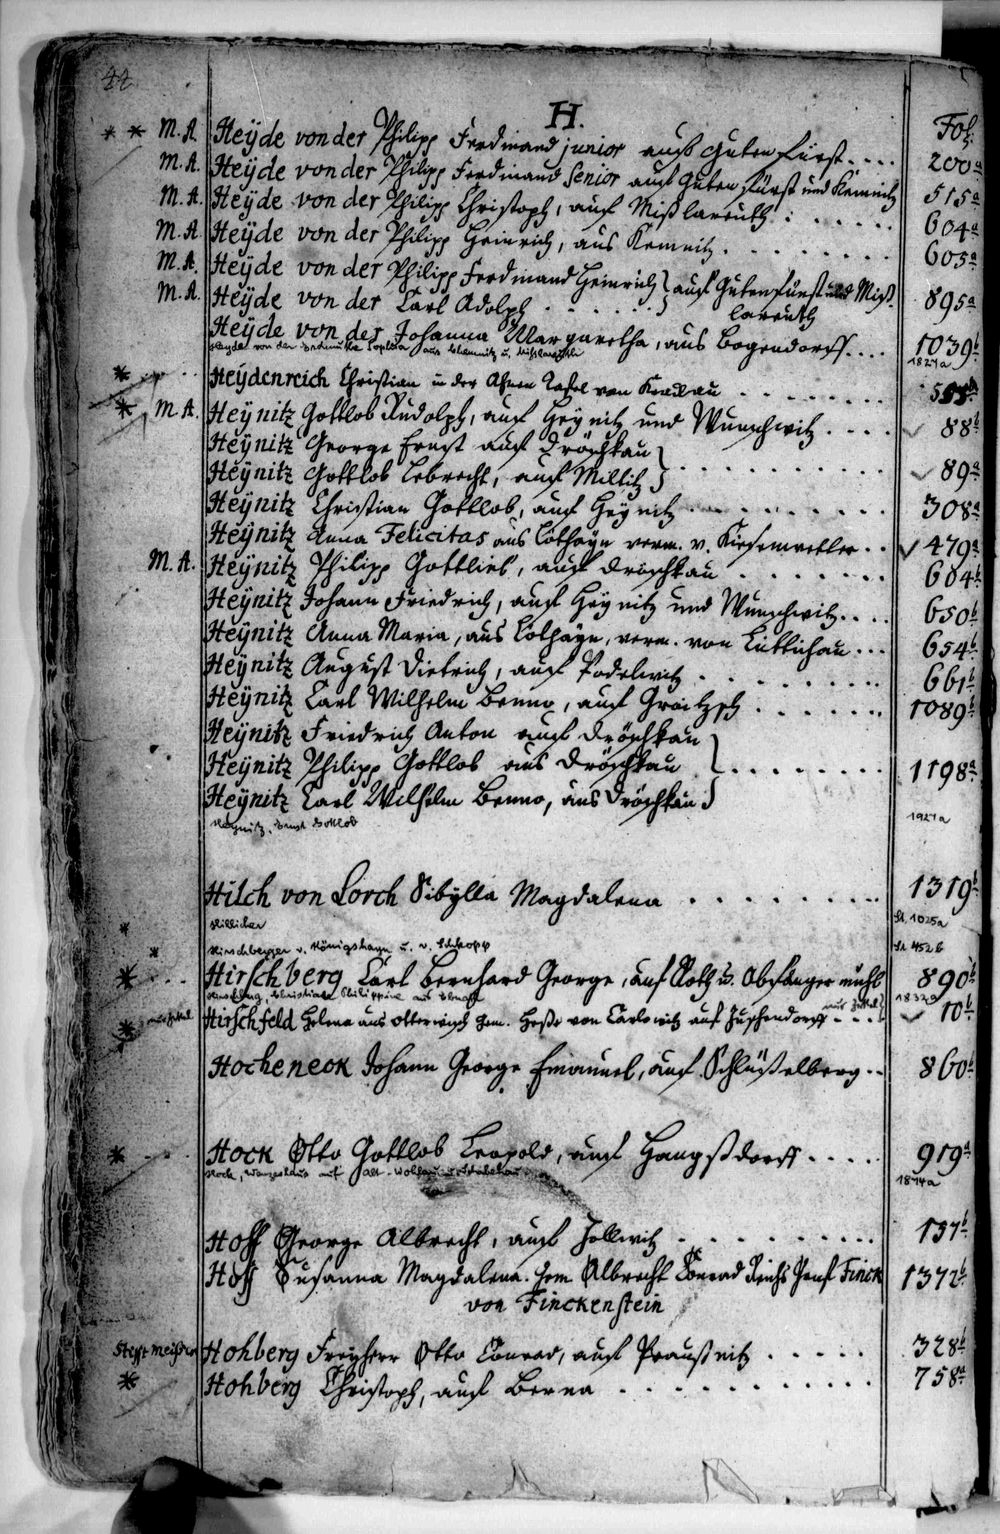 44
H.
Fol:
M. A. Heÿde von der Philipp Ferdinand junior auf Gutenfürst.... 200a
M. A. Heÿde von der Philipp Ferdinand Senior auf Gutenfürst und Kemnitz 515a
M. A. Heÿde von der Philipp Christoph, auf Mißlareuth 604a
M. A. Heÿde von der Philipp Heinrich, aus Kemnitz 605a
M. A. Heÿde von der Philipp Ferdinand Heinrich } auf Gutenfürst und Miß-
M. A. Heÿde von der Carl Adolph lareuth 895a
Heÿde von der Johanna Margaretha, aus Bogendorff.... 1039b
Heyde von der Sophia aus Chemnitz u. 1821a
Heÿdenreich Christian in der Ahnen Tafel von
M. A. Heÿnitz Gottlob Rudolph, auf Heynitz und Wunschwitz.... 88b
Heÿnitz George Ernst auf Dröschkau
Heÿnitz Gottlob Lebrecht, auf Miltitz } 89a
Heÿnitz Christian Gottlob, auf Heynitz 308a
Heÿnitz Anna Felicitas aus Cöthayn verm. v. Kiesenwetter.. 479a
M. A. Heÿnitz Philipp Gottlieb, auf Dröschkau 604b
Heÿnitz Johann Friedrich, auf Heynitz und Wunschwitz.... 650b
Heÿnitz Anna Maria, aus Cöthayn, verm. von Lüttichau... 654b
Heÿnitz August Dietrich, auf Podelwitz 661b
Heÿnitz Carl Wilhelm Benno, auf Groitzsch 1089b
Heÿnitz Friedrich Anton auf Dröschkau
Heÿnitz Philipp Gottlob aus Dröschkau } 1198a
Heÿnitz Carl Wilhelm Benno, aus Dröschkau
Heynitz, Ernst Gottlob 1921a
Hilch von Lorch Sibylla Magdalena 1319b
Hillicher St. 1025a
Hirschberger v. Königshayn u. v. Schkopp St 452b
Hirschberg Carl Bernhard George, auf Roth u. Obsängermühl 890b
Christiane Philippine aus 1832a
Hirschfeld Helena aus Otterwisch Hasse von Carlowitz auf Zuschendorff 10b
Hocheneck Johann George Emanuel, auf Schlüßelberg.. 860b
Hock Otto Gottlob Leopold, auf Haugßdorff 919a
Hock, auf Alt-Wohlau 1814a
Hoff George Albrecht, auf Zollwitz 137b
Hoff Susanna Magdalena. Albrecht Conrad Reichs Graf Finck
von Finckenstein 1372b
Stifft Meißen Hohberg Freyherr Otto Conrad, auf Praußnitz 328b
Hohberg Christoph, auf Berna 758a